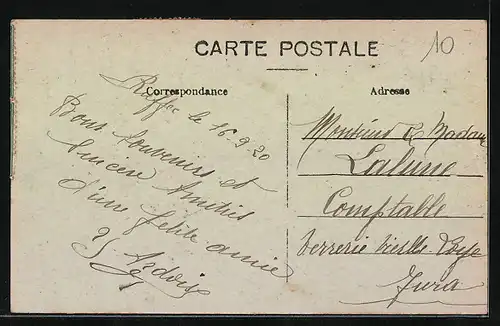 CARTE POSTALE
10
Correspondance
Adresse
Ruffec le 16.9.20
Bons souvenirs et
sincère Amitiés
d'une petite amie
Monsieur & Madame
Lalune
Comptable
Verrerie Vieille Loye
Jura